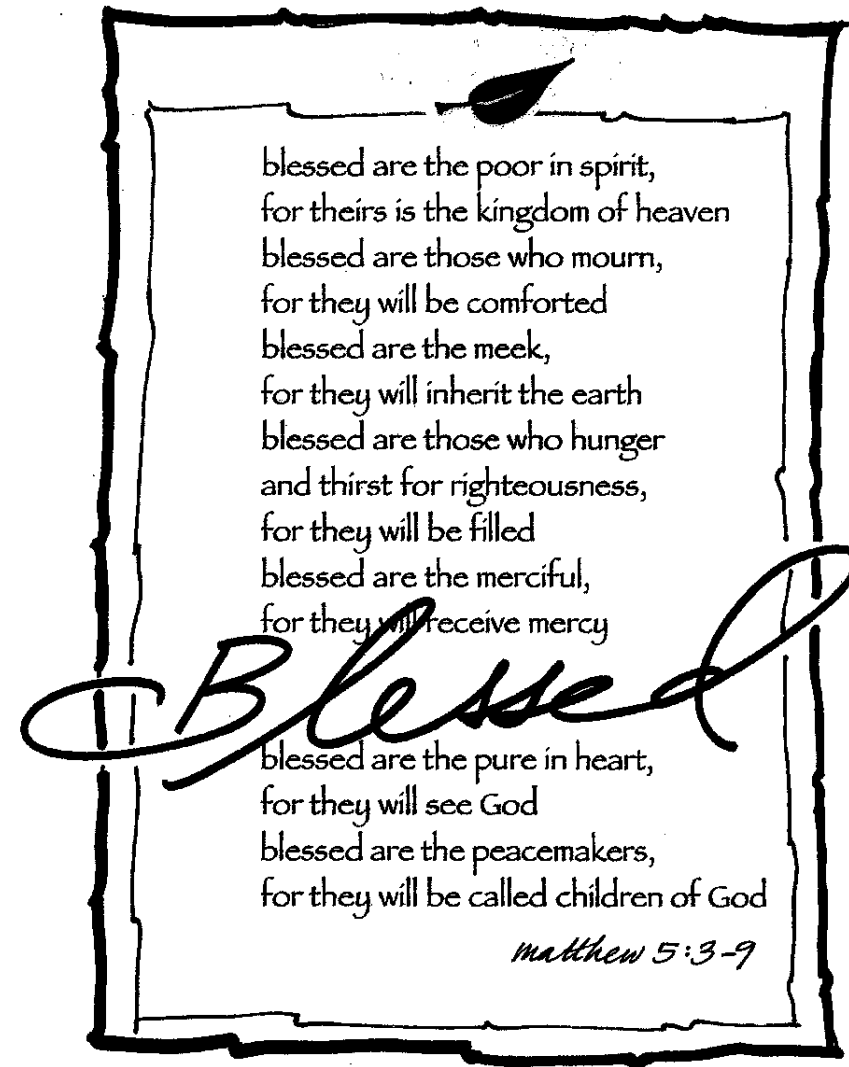 blessed are the poor in spirit,
for theirs is the kingdom of heaven
blessed are those who mourn,
for they will be comforted
blessed are the meek,
for they will inherit the earth
blessed are those who hunger
and thirst for righteousness,
for they will be filled
blessed are the merciful,
for they will receive mercy
Blessed
blessed are the pure in heart,
for they will see God
blessed are the peacemakers,
for they will be called children of God
matthew 5:3-9